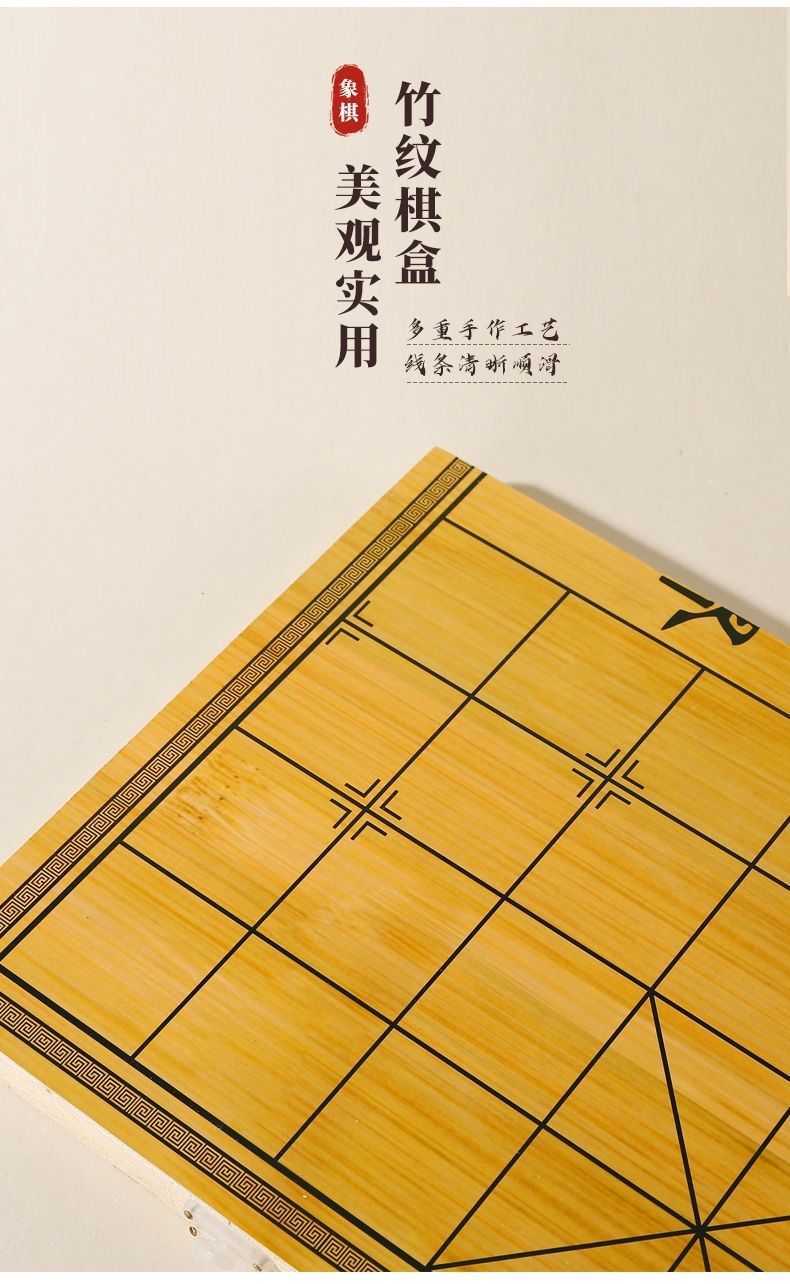 象棋
竹纹棋盒
美观实用
多重手作工艺
线条清晰顺滑